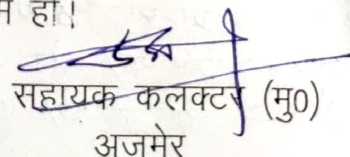 हो!
सहायक कलक्टर (मु0)
अजमेर